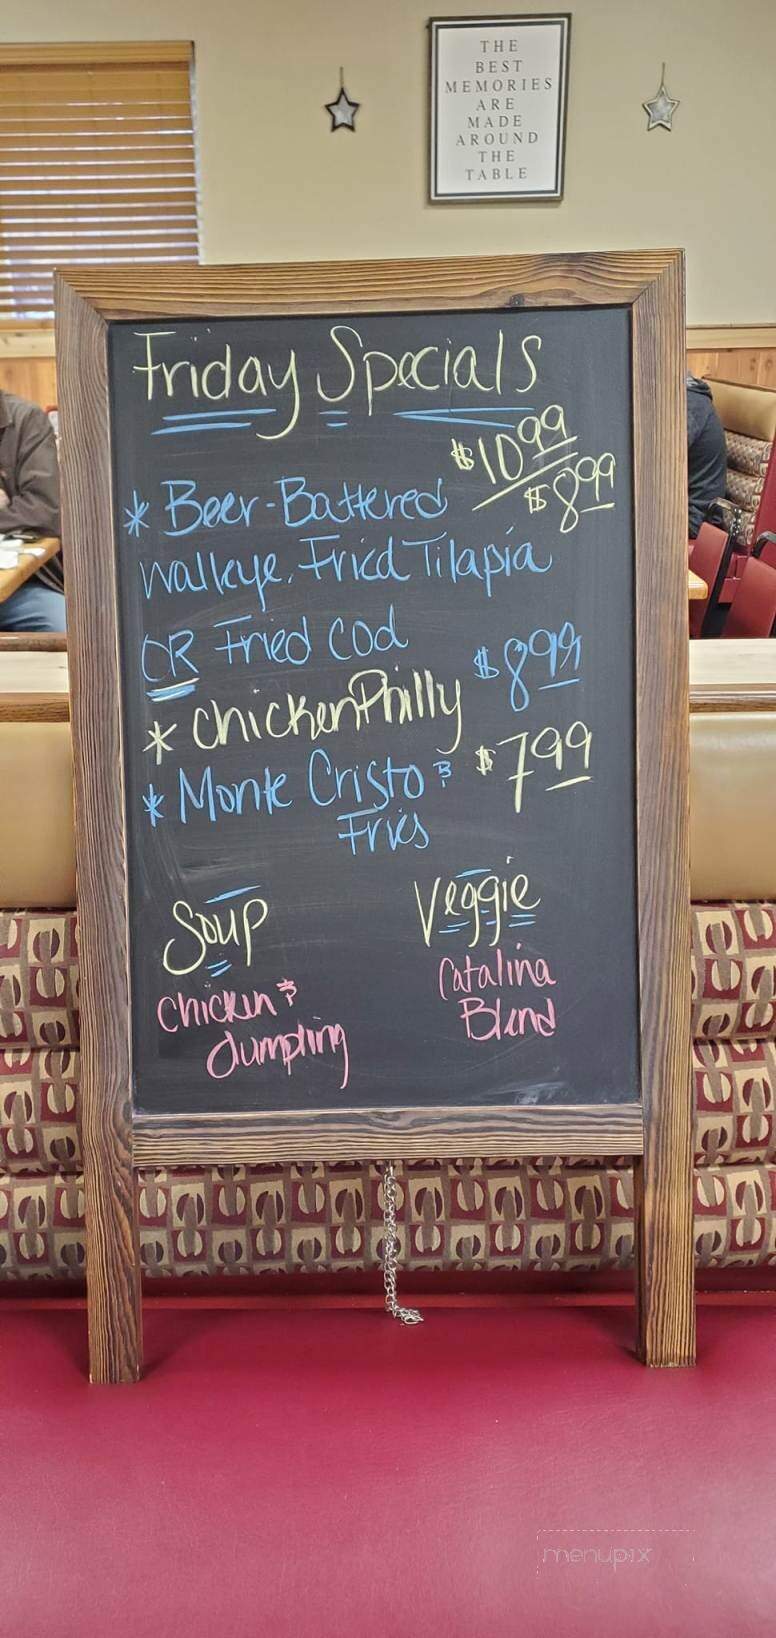 THE
BEST
MEMORIES
ARE
MADE
AROUND
THE
TABLE
Friday Specials
$10.99/$8.99
* Beer-Battered
Walleye, Fried Tilapia
OR Fried Cod
$8.99
* Chicken Philly
$7.99
* Monte Cristo &
Fries
Soup
Chicken &
dumpling
Veggie
Catalina
Blend
menupix